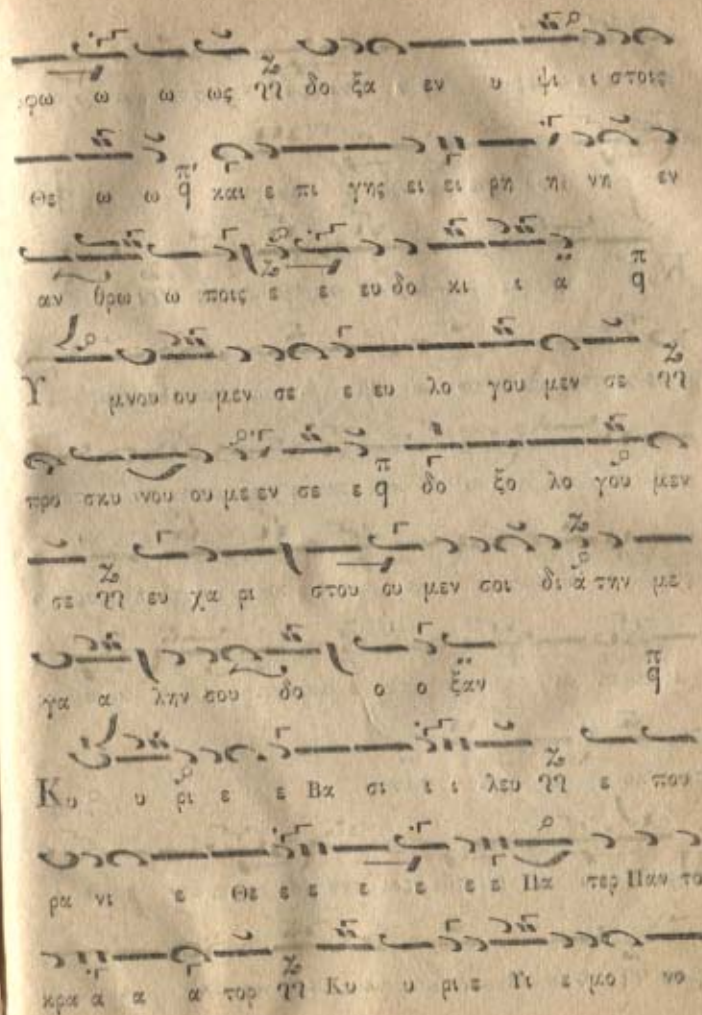 φω ω ω ως δο ξα εν υ ψι ι στοις
Θε ω ω και ε πι γης ει ει ρη η νη εν
αν θρω ω ποις ε ε ευ δο κι ι α
Υ μνου ου μεν σε ε ευ λο γου μεν σε
προ σκυ νου ου με εν σε ε δο ξο λο γου μεν
σε ευ χα ρι στου ου μεν σοι δι α την με
γα α λην σου δο ο ο ξαν
Κυ υ ρι ε ε Βα σι ι ι λευ ε που
ρα νι ε Θε ε ε ε ε ε ε Πα τερ Παν το
κρα α α α τορ Κυ υ ρι ε Υι ε μο νο